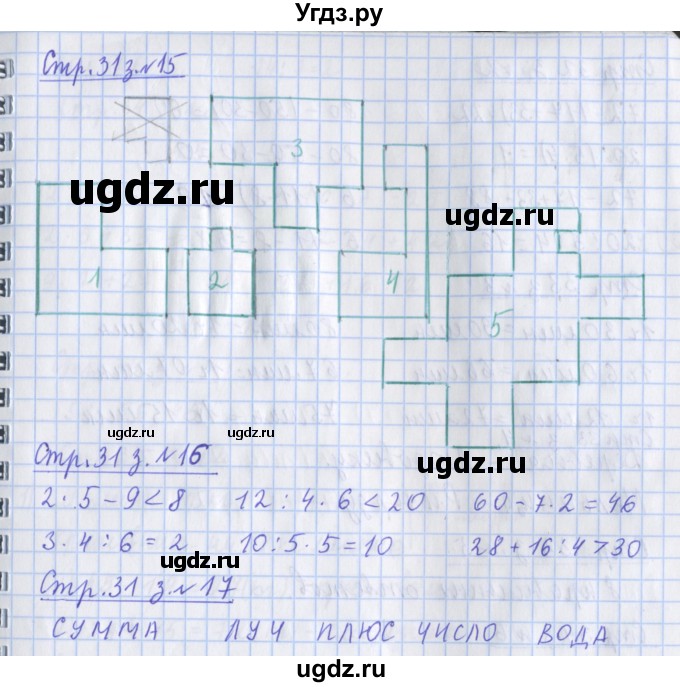 Угдз.ру
Стр.31 з.№15
3
ugdz.ru
ugdz.ru
1
2
4
5
ugdz.ru
ugdz.ru
ugdz.ru
Стр.31 з.№16
2·5-9<8 12:4·6<20 60-7·2=46
3·4:6=2 10:5·5=10 28+16:4>30
ugdz.ru
Стр.31 з.№17
СУММА ЛУЧ ПЛЮС ЧИСЛО ВОДА
ugdz.ru